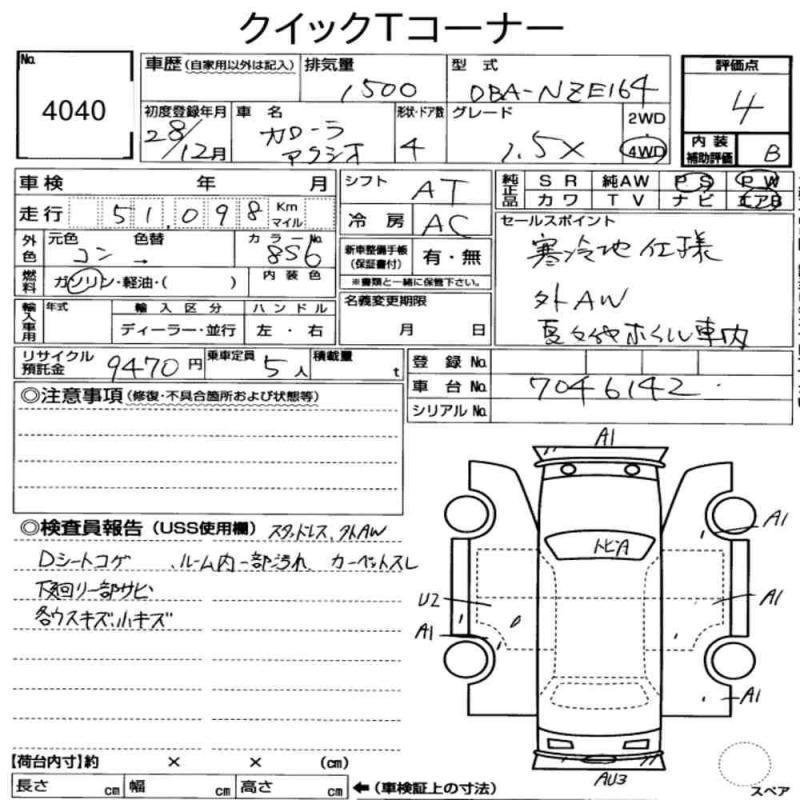 クイックTコーナー
No.
4040
車歴(自家用以外は記入)
排気量
1500
型式
DBA-NZE164
評価点
4
初度登録年月
28/12月
車名
カローラ
アクシオ
形状・ドア数
4
グレード
1.5X
2WD
4WD
内装
補助評価
B
車検 年 月
走行 51,098 Km
マイル
シフト AT
純正品
SR 純AW PS PW
カワ TV ナビ エアB
外色
元色 色替
コン →
カラーNo.
856
冷房 AC
セールスポイント
寒冷地仕様
外AW
夏タイヤホイル車内
燃料
ガソリン・軽油・( )
内装色
新車整備手帳
(保証書付)
有・無
※書類と一緒に保管下さい。
輸入車用
年式
輸入区分
ハンドル
ディーラー・並行
左・右
名義変更期限
月 日
リサイクル
預託金
9470円
乗車定員
5人
積載量
t
登録No.
車台No.
7046142
シリアルNo.
◎注意事項(修復・不具合箇所および状態等)
◎検査員報告(USS使用欄) スタッドレス、外AW
Dシートコゲ 、ルーム内一部汚れ カーペットスレ
下廻り一部サビ
各ウスキズ、小キズ
A1
A1
トビA
U2
A1
A1
A1
AU3
スペア
【荷台内寸】約 × × (cm)
長さ cm 幅 cm 高さ cm ←(車検証上の寸法)